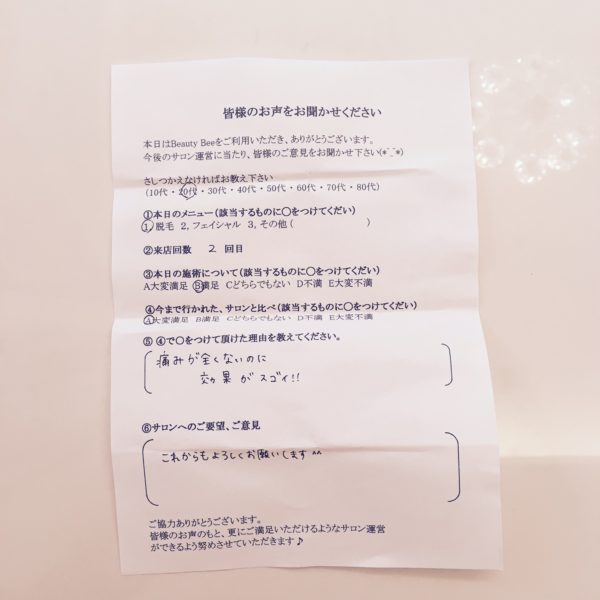 皆様のお声をお聞かせください
本日はBeauty Beeをご利用いただき、ありがとうございます。
今後のサロン運営に当たり、皆様のご意見をお聞かせ下さい(*^_^*)
さしつかえなければお教え下さい
(10代・20代・30代・40代・50代・60代・70代・80代)
①本日のメニュー(該当するものに〇をつけてくだい)
1, 脱毛 2, フェイシャル 3, その他 ( )
②来店回数 2 回目
③本日の施術について(該当するものに〇をつけてくだい)
A大変満足 B満足 Cどちらでもない D不満 E大変不満
④今まで行かれた、サロンと比べ(該当するものに〇をつけてくだい)
A大変満足 B満足 Cどちらでもない D不満 E大変不満
⑤ ④で〇をつけて頂けた理由を教えてください。
痛みが全くないのに
効果がスゴイ!!
⑥サロンへのご要望、ご意見
これからもよろしくお願いします^^
ご協力ありがとうございます。
皆様のお声のもと、更にご満足いただけるようなサロン運営
ができるよう努めさせていただきます♪